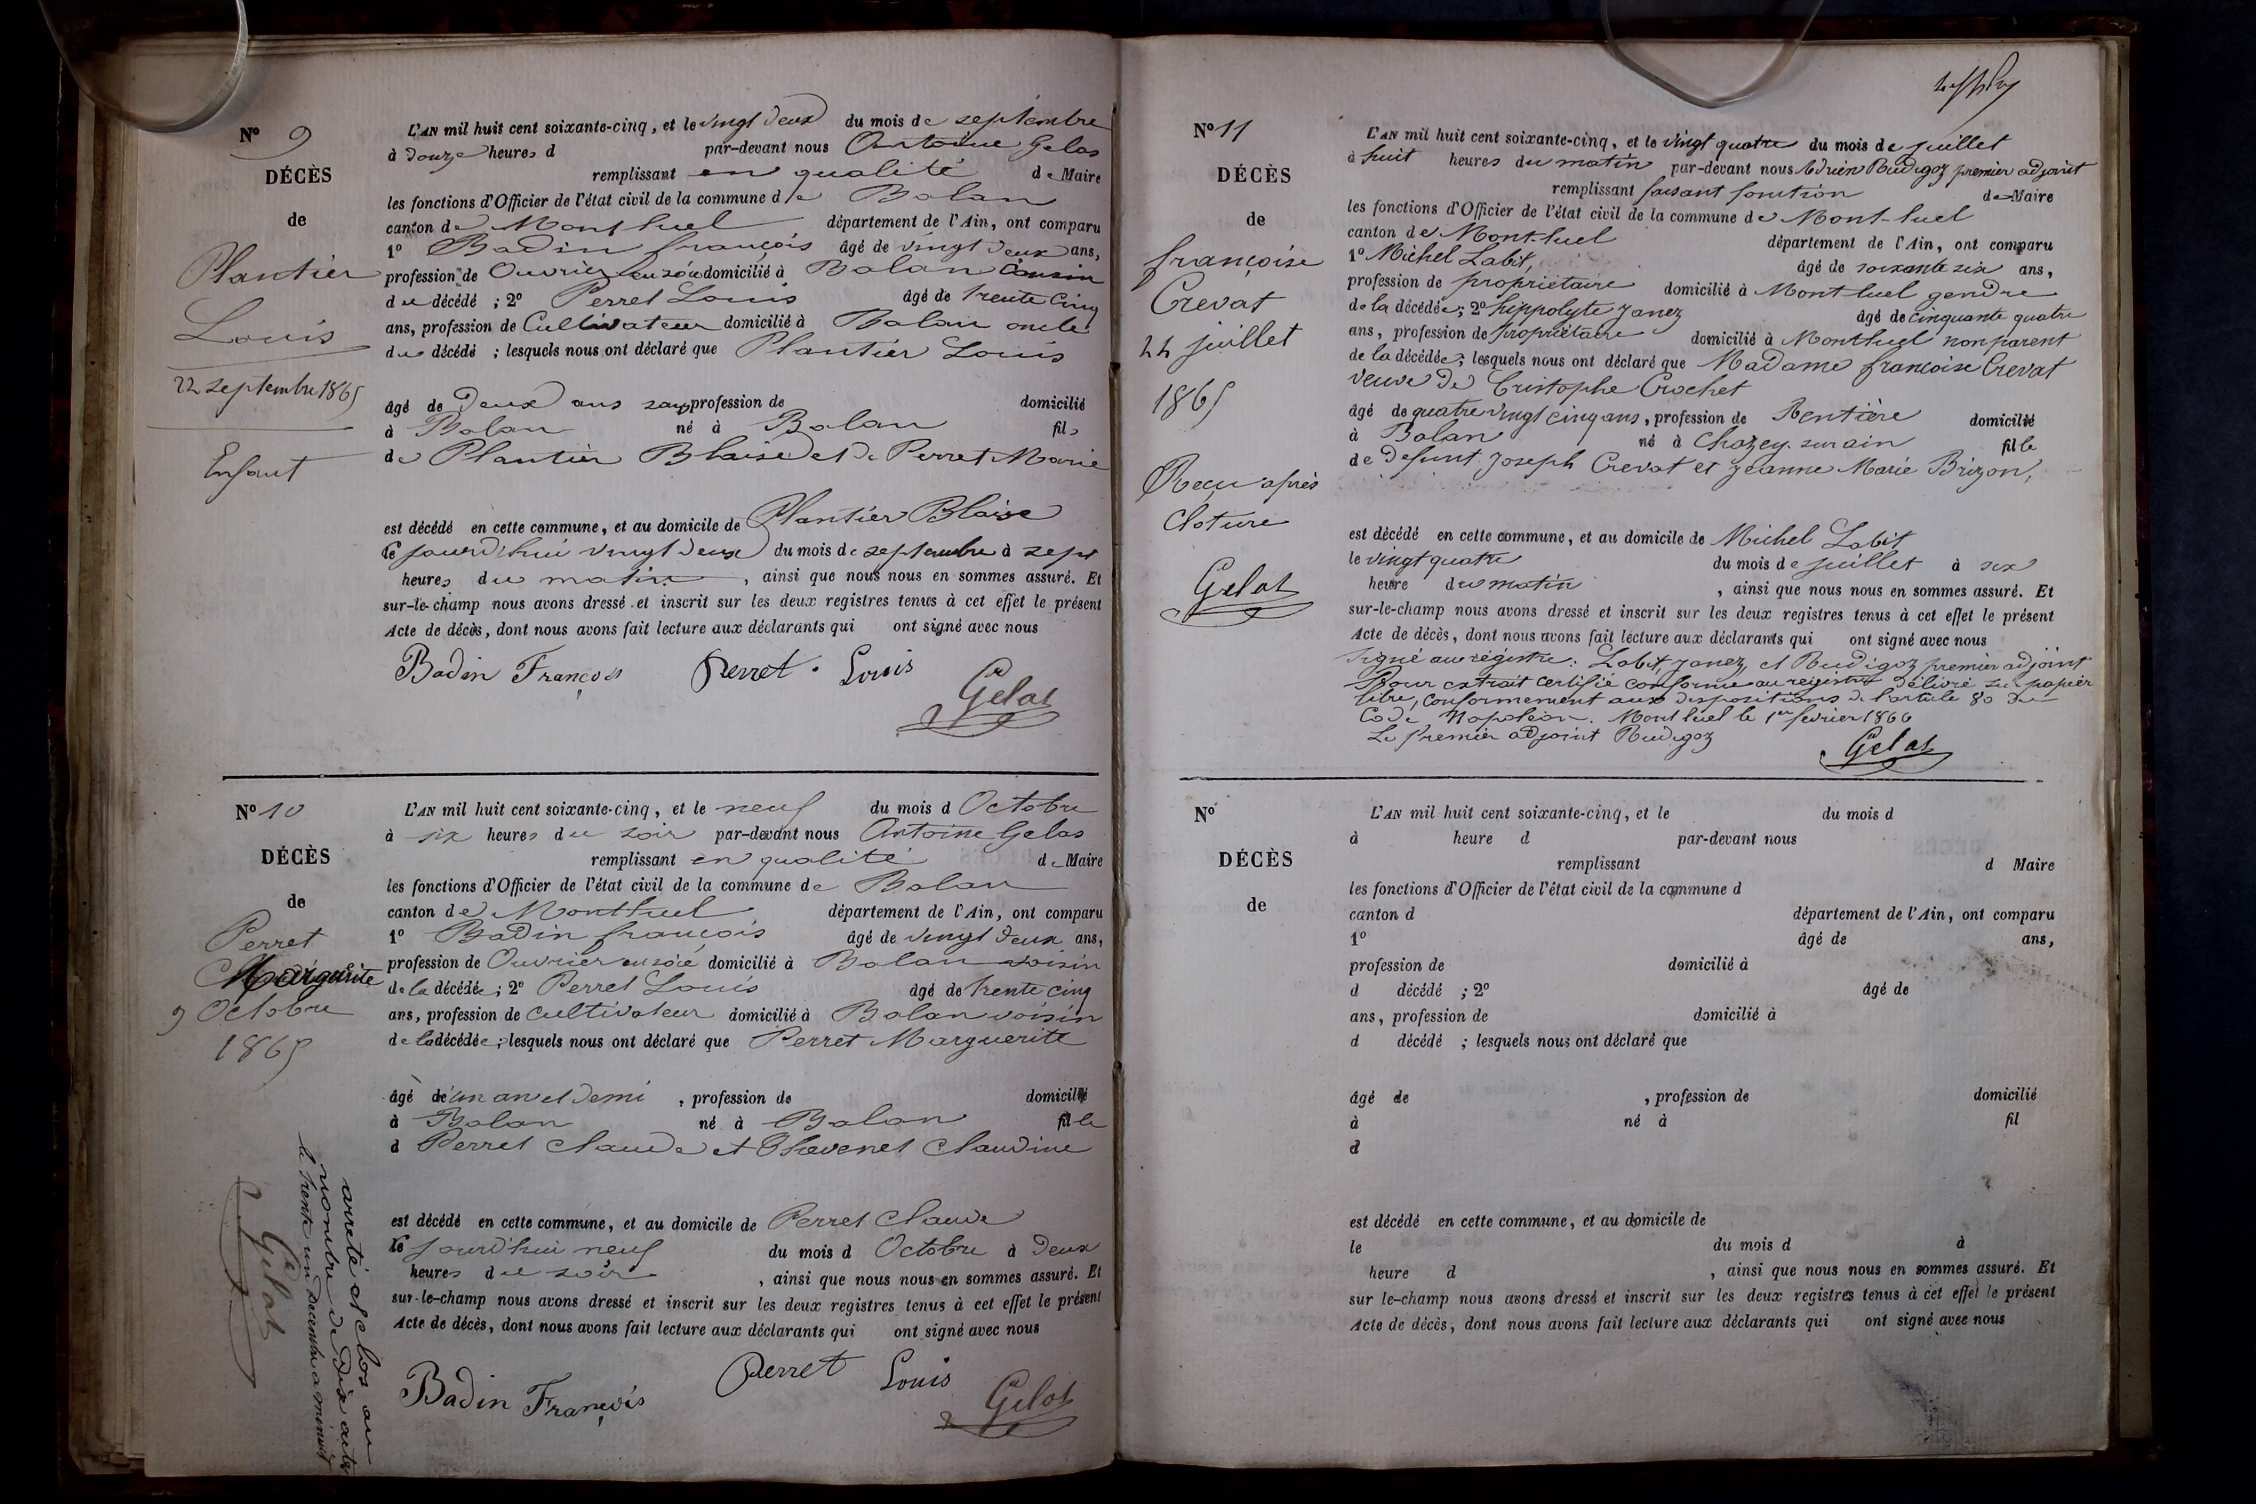 N° 9
DÉCÈS
de
Plantier
Louis
22 septembre 1865
Enfant
L'AN mil huit cent soixante-cinq, et le vingt deux du mois de septembre
à douze heures d par-devant nous Antoine Gelas
remplissant en qualité de Maire
les fonctions d'Officier de l'état civil de la commune de Balan
canton de Montluel département de l'Ain, ont comparu
1° Badin françois âgé de vingt deux ans,
profession de Ouvrier en soie domicilié à Balan Cousin
du décédé ; 2° Perret Louis âgé de trente cinq
ans, profession de Cultivateur domicilié à Balan oncle
du décédé ; lesquels nous ont déclaré que Plantier Louis
âgé de deux ans sans profession de domicilié
à Balan né à Balan fils
de Plantier Blaise et de Perret Marie
est décédé en cette commune, et au domicile de Plantier Blaise
le jourd'hui vingt deux du mois de septembre à sept
heures du matin, ainsi que nous nous en sommes assuré. Et
sur-le-champ nous avons dressé et inscrit sur les deux registres tenus à cet effet le présent
Acte de décès, dont nous avons fait lecture aux déclarants qui ont signé avec nous
Badin François Perret Louis
Gelas
N° 10
DÉCÈS
de
Perret
Marguerite
9 Octobre
1865
L'AN mil huit cent soixante-cinq, et le neuf du mois d Octobre
à six heures du soir par-devant nous Antoine Gelas
remplissant en qualité de Maire
les fonctions d'Officier de l'état civil de la commune de Balan
canton de Montluel département de l'Ain, ont comparu
1° Badin françois âgé de vingt deux ans,
profession de Ouvrier en soie domicilié à Balan voisin
de la décédée ; 2° Perret Louis âgé de trente cinq
ans, profession de cultivateur domicilié à Balan voisin
de la décédée ; lesquels nous ont déclaré que Perret Marguerite
âgé de un an et demi, profession de domicilié
à Balan né à Balan fille
d Perret Claude et Thevenet Claudine
est décédé en cette commune, et au domicile de Perret Claude
le jourd'hui neuf du mois d Octobre à deux
heures du soir, ainsi que nous nous en sommes assuré. Et
sur-le-champ nous avons dressé et inscrit sur les deux registres tenus à cet effet le présent
Acte de décès, dont nous avons fait lecture aux déclarants qui ont signé avec nous
Badin François Perret Louis
Gelas
arreté et clos au
nombre de dix actes
le trente un Decembre a minuit
Gelas
N° 11
DÉCÈS
de
françoise
Crevat
24 juillet
1865
Reçu après
cloture
Gelas
L'AN mil huit cent soixante-cinq, et le vingt quatre du mois de juillet
à huit heures du matin par-devant nous Adrien Rudigoz premier adjoint
remplissant faisant fonction de Maire
les fonctions d'Officier de l'état civil de la commune de Mont-luel
canton de Mont-luel département de l'Ain, ont comparu
1° Michel Labit, âgé de soixante six ans,
profession de propriétaire domicilié à Mont-luel gendre
de la décédée ; 2° hippolyte Janez âgé de cinquante quatre
ans, profession de propriétaire domicilié à Montluel non parent
de la décédée ; lesquels nous ont déclaré que Madame françoise Crevat
veuve de Cristophe Crochet
âgé de quatre vingt cinq ans, profession de Rentière domicilié
à Balan né à Chazey-sur ain fille
de defunt Joseph Crevat et Jeanne Marie Brizon,
est décédé en cette commune, et au domicile de Michel Labit
le vingt quatre du mois de juillet à six
heure du matin, ainsi que nous nous en sommes assuré. Et
sur-le-champ nous avons dressé et inscrit sur les deux registres tenus à cet effet le présent
Acte de décès, dont nous avons fait lecture aux déclarants qui ont signé avec nous
Signé au registre : Labit, Janez et Rudigoz premier adjoint
Pour extrait certifié conforme au registre délivré sur papier
libre, conformement aux dispositions de l'article 80 du
Code Napoléon. Mont luel le 1er fevrier 1866
Le premier adjoint Rudigoz
Gelas
N°
DÉCÈS
de
L'AN mil huit cent soixante-cinq, et le du mois d
à heure d par-devant nous
remplissant d Maire
les fonctions d'Officier de l'état civil de la commune d
canton d département de l'Ain, ont comparu
1° âgé de ans,
profession de domicilié à
d décédé ; 2° âgé de
ans, profession de domicilié à
d décédé ; lesquels nous ont déclaré que
âgé de , profession de domicilié
à né à fil
d
est décédé en cette commune, et au domicile de
le du mois d à
heure d , ainsi que nous nous en sommes assuré. Et
sur le-champ nous avons dressé et inscrit sur les deux registres tenus à cet effet le présent
Acte de décès, dont nous avons fait lecture aux déclarants qui ont signé avec nous